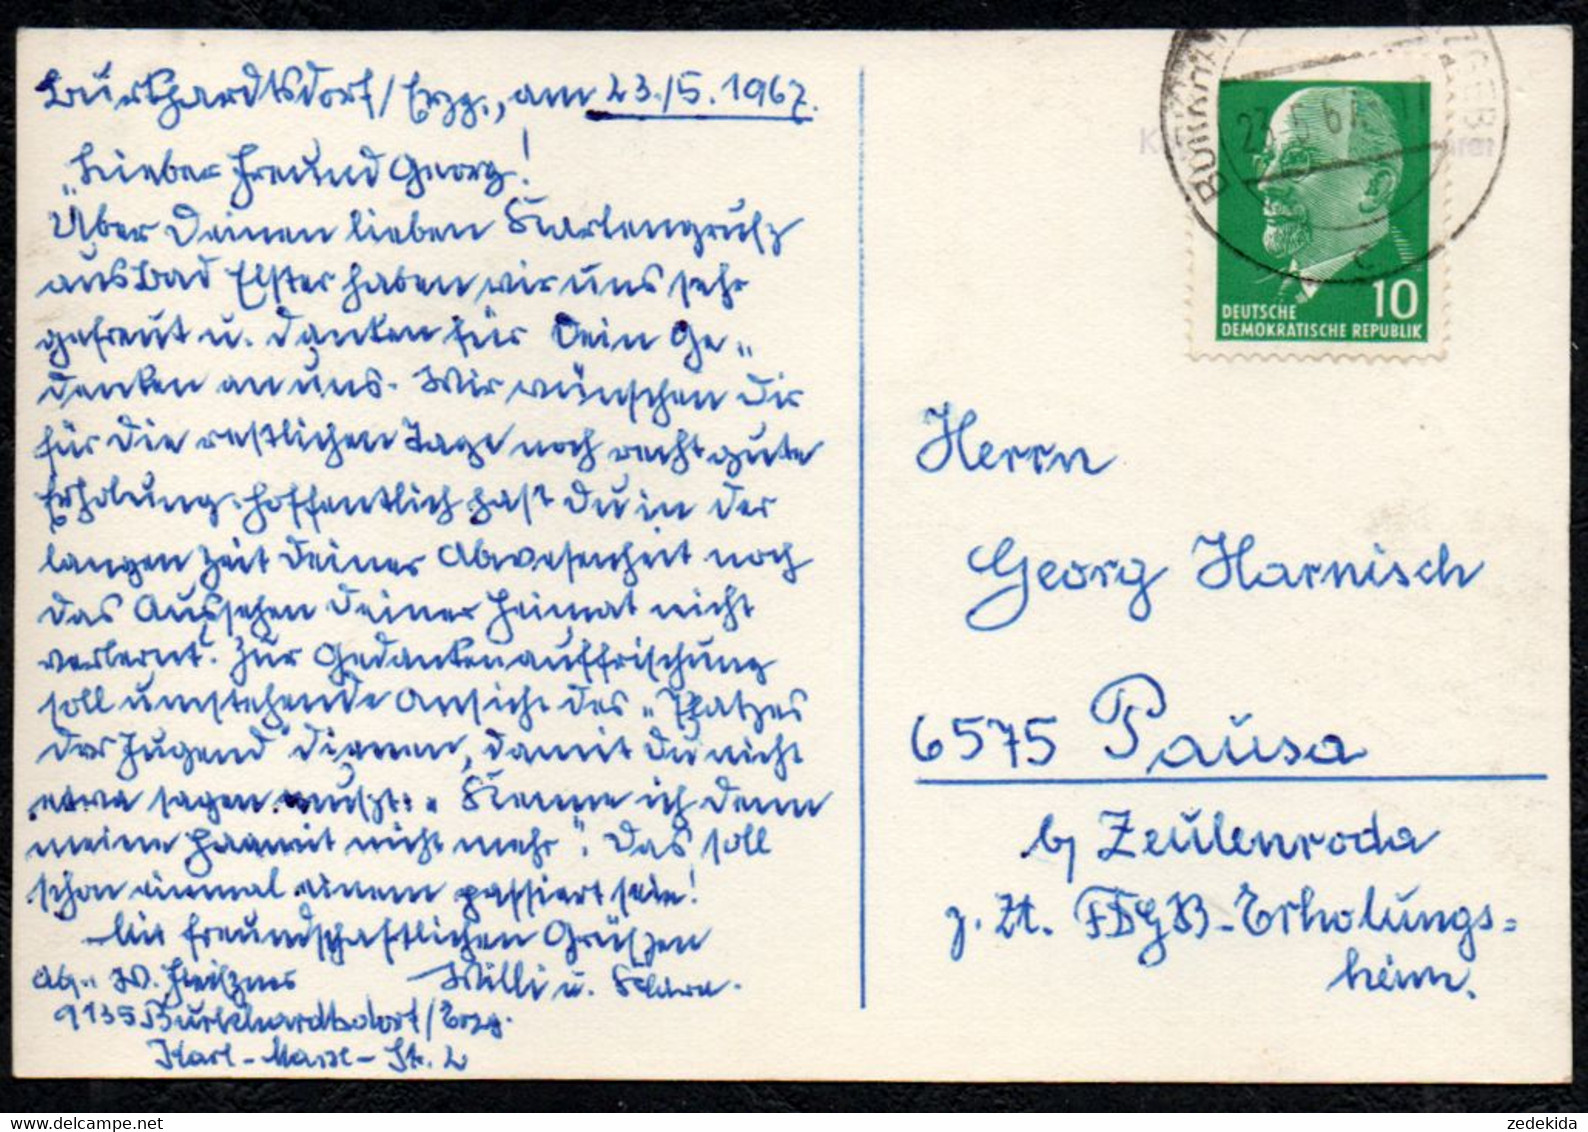 Burkhardtsdorf/Erzg., am 23./5. 1967.
"Lieber Freund Georg!
Über Deinen lieben Kartengrusz
aus Bad Elster haben wir uns sehr
gefreut u. danken für Dein Ge„
denken an uns. Wir wünschen Dir
für die restlichen Tage noch recht gute
Erholung. Hoffentlich hast Du in der
langen Zeit Deiner Abwesenheit noch
das Aussehen Deiner Heimat nicht
verlernt? Zur Gedankenauffrischung
soll umstehende Ansicht des "Platzes
der Jugend" dienen, damit Du nicht
etwa sagen muszt: "Kenne ich denn
meine Heimat nicht mehr". Das soll
schon einmal einem passiert sein!
Mit freundschaftlichen Grüszen
Willi u. Klara.
Abs. W.
9135 Burkhardtsdorf/Erzg.
Karl-Marx-Str. 2
23.5.67
10
DEUTSCHE
DEMOKRATISCHE REPUBLIK
Herrn
Georg Harnisch
6575 Pausa
b/ Zeulenroda
z. Zt. FDGB-Erholungs=
heim.
zedekida